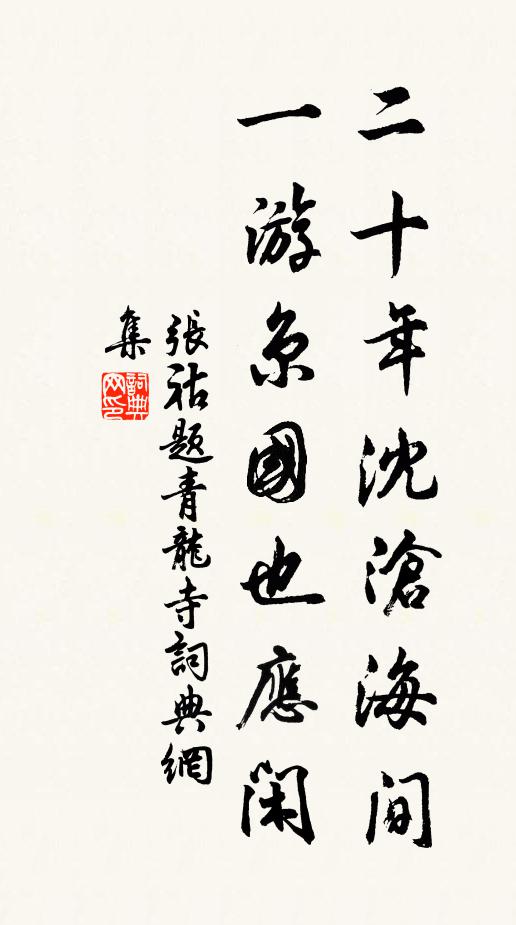 二十年沈滄海間
一游京國也應閑
張祜題青龍寺詞典網
集
詞典
网印